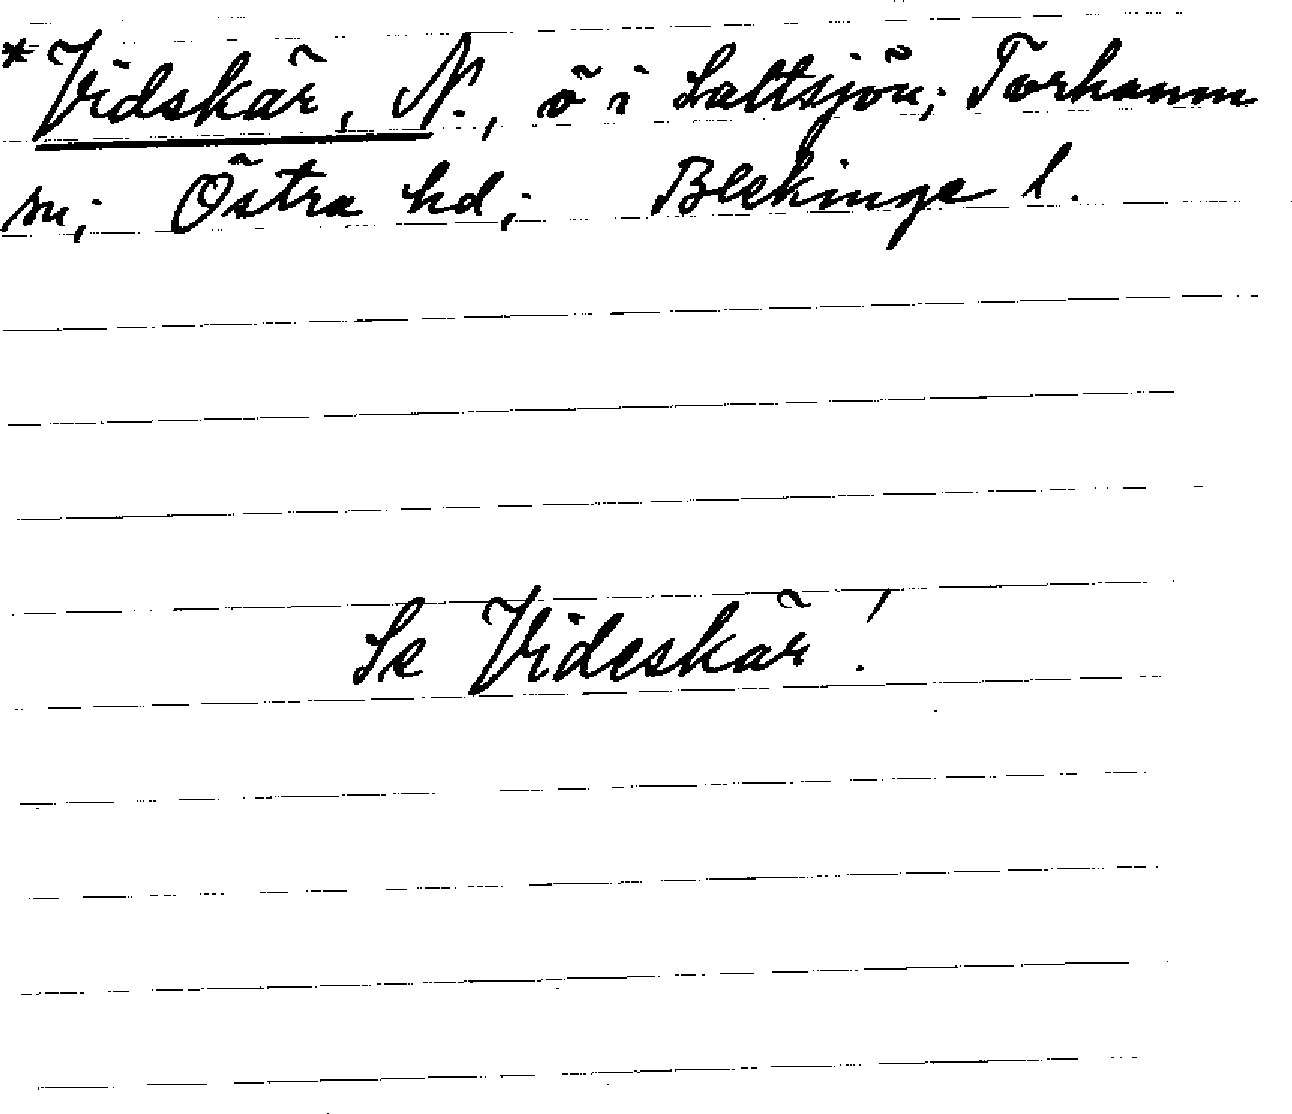 *Vidskär, N., ö i Saltsjön; Torhamn
sn; Östra hd; Blekinge l.
Se Videskär!